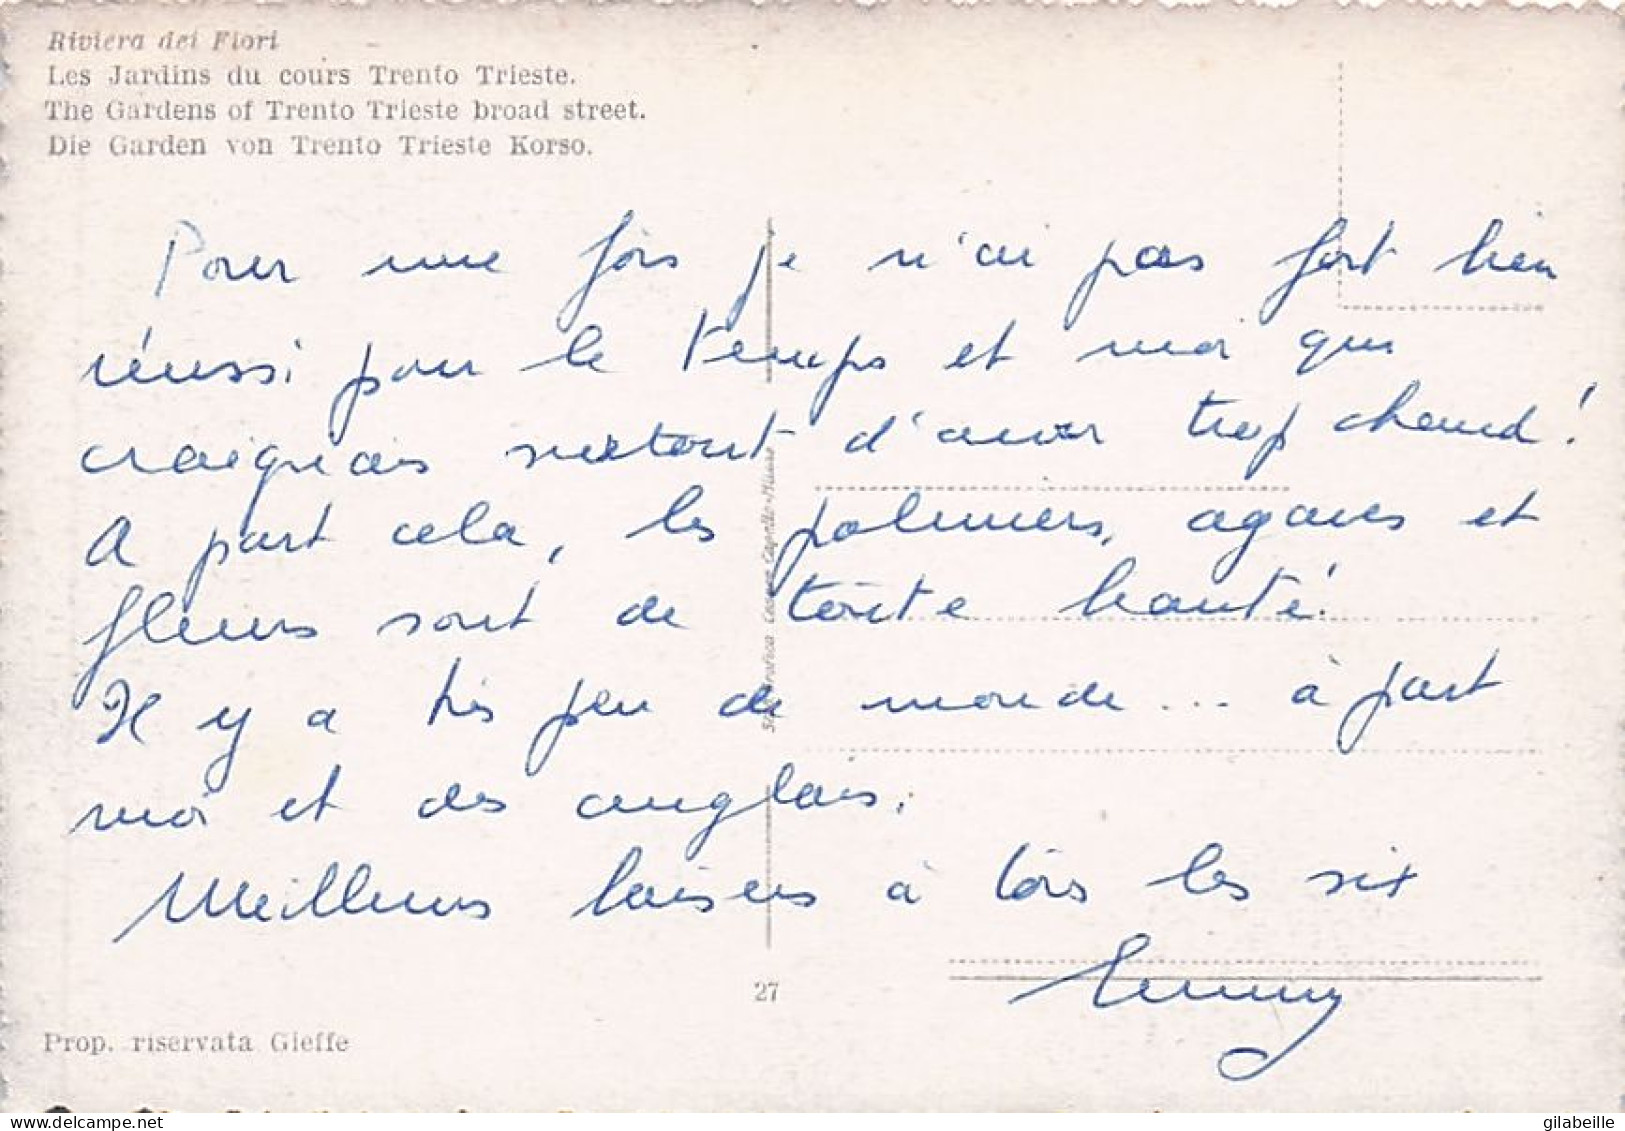 Riviera dei Fiori
Les Jardins du cours Trento Trieste.
The Gardens of Trento Trieste broad street.
Die Garden von Trento Trieste Korso.
Pour une fois je n'ai pas fort bien
réussi pour le temps et moi qui
craignais surtout d'avoir trop chaud !
A part cela, les palmiers, agaves et
fleurs sont de toute beauté.
Il y a très peu de monde... à part
moi et des anglais.
Meilleurs baisers à tous les six
27
Prop. riservata Gieffe
gilabeille